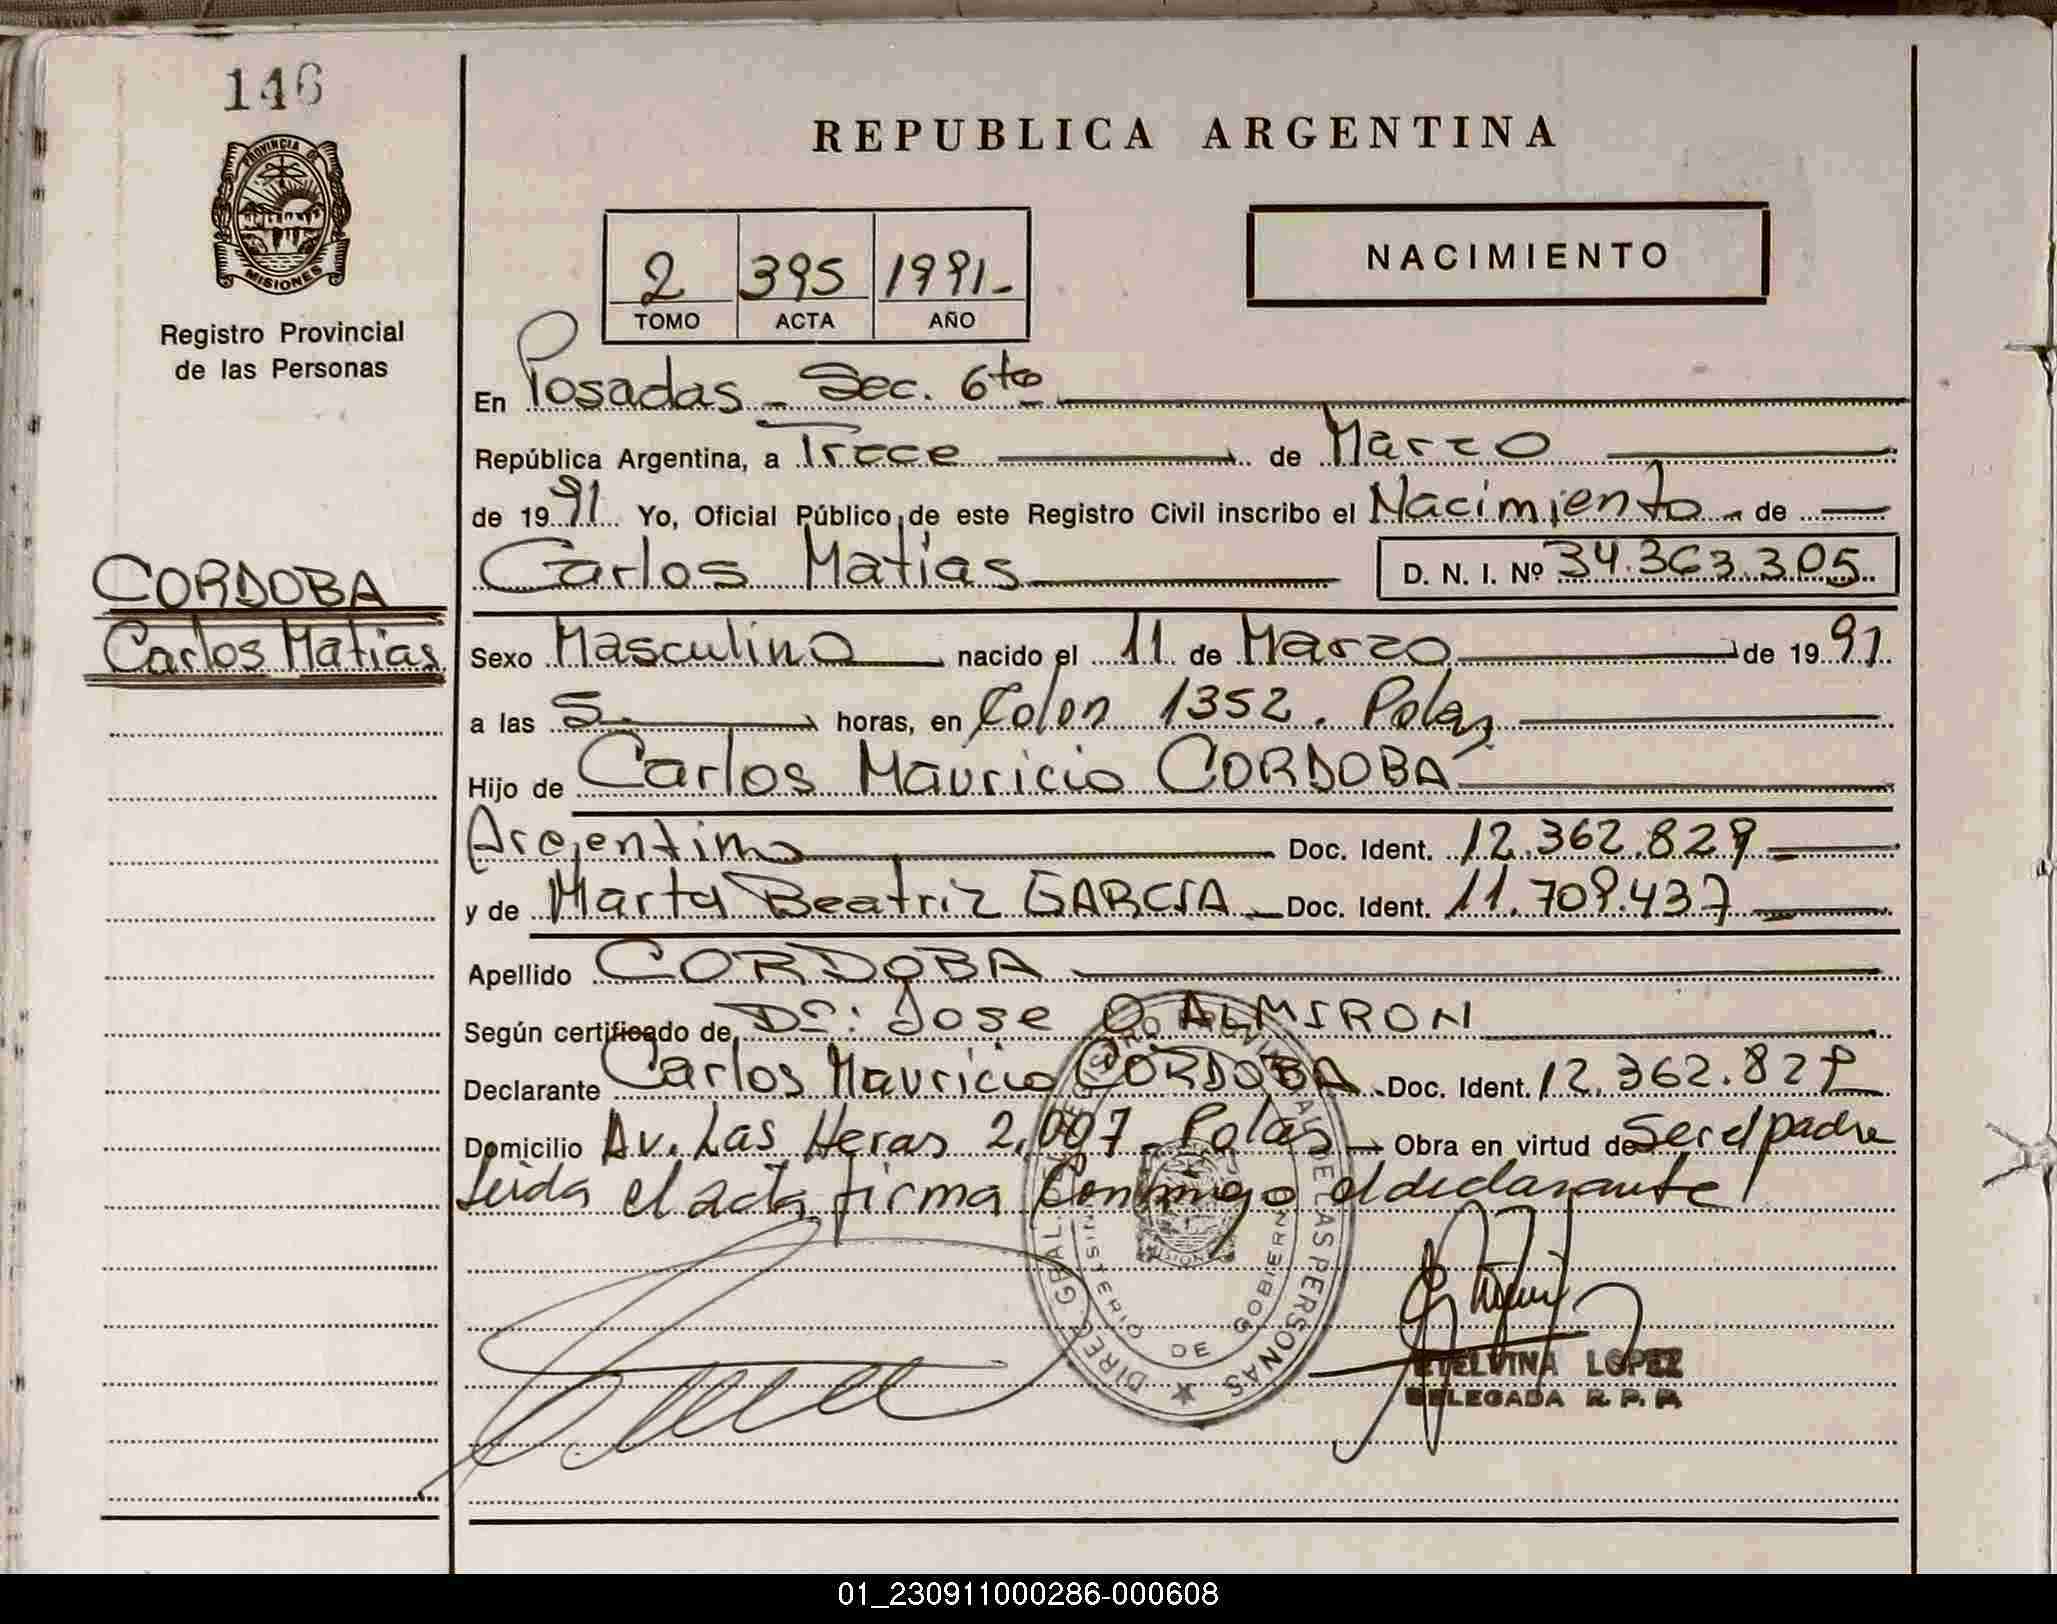 146
PROVINCIA DE
MISIONES
Registro Provincial
de las Personas
CORDOBA
Carlos Matias
REPUBLICA ARGENTINA
NACIMIENTO
2 395 1991-
TOMO ACTA AÑO
En Posadas - Sec. 6ta
República Argentina, a Trece de Marzo
de 1991 Yo, Oficial Público de este Registro Civil inscribo el Nacimiento de
Carlos Matías D. N. I. Nº 34.363.305
Sexo Masculino nacido el 11 de Marzo de 1991
a las 5. horas, en Colon 1352. Pdas
Hijo de Carlos Mauricio CORDOBA
Argentino Doc. Ident. 12.362.829
y de Marta Beatriz GARCIA Doc. Ident. 11.709.437
Apellido CORDOBA
Según certificado de Dr: Jose O ALMIRON
Declarante Carlos Mauricio CORDOBA Doc. Ident. 12.362.829
Domicilio Av. Las Heras 2.007 - Pdas Obra en virtud de Ser el padre
Leida el acta firma Conmigo el declarante
MINISTERIO DE GOBIERNO
DE LAS PERSONAS
ETELVINA LOPEZ
DELEGADA R. P. P.
01_230911000286-000608